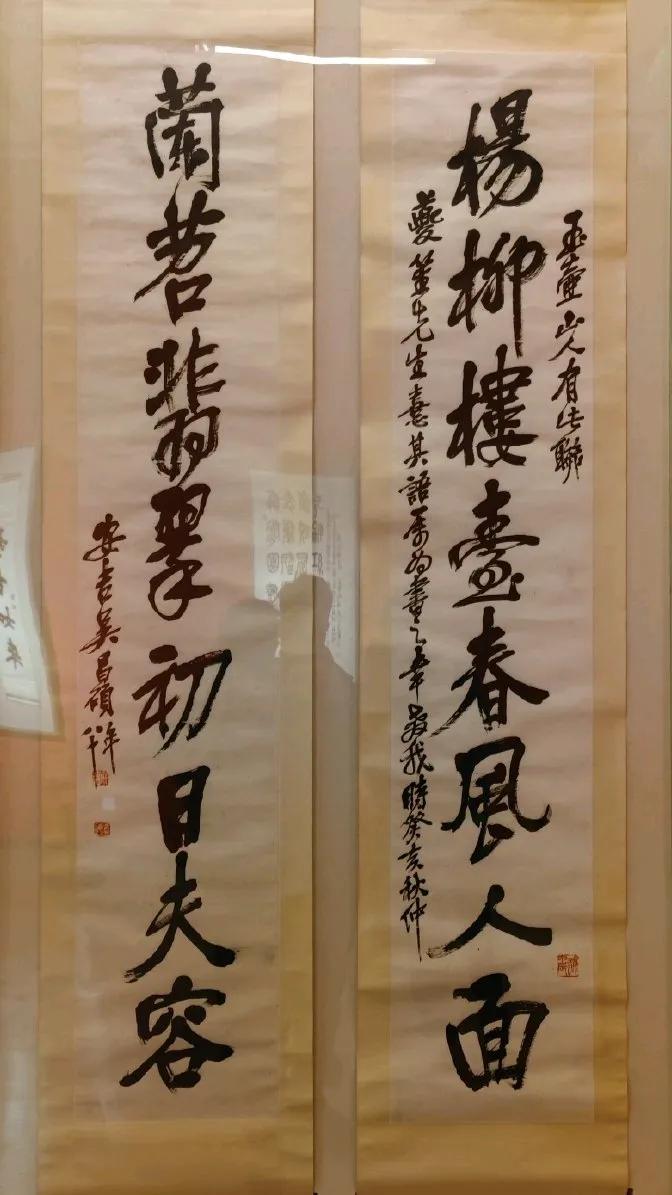 楊柳樓臺春風人面
玉壺山人有此聯
夔笙先生憙其語屬為書之幸教我時癸亥秋仲
蘭苕翡翠初日夫容
安吉吳昌碩年八十